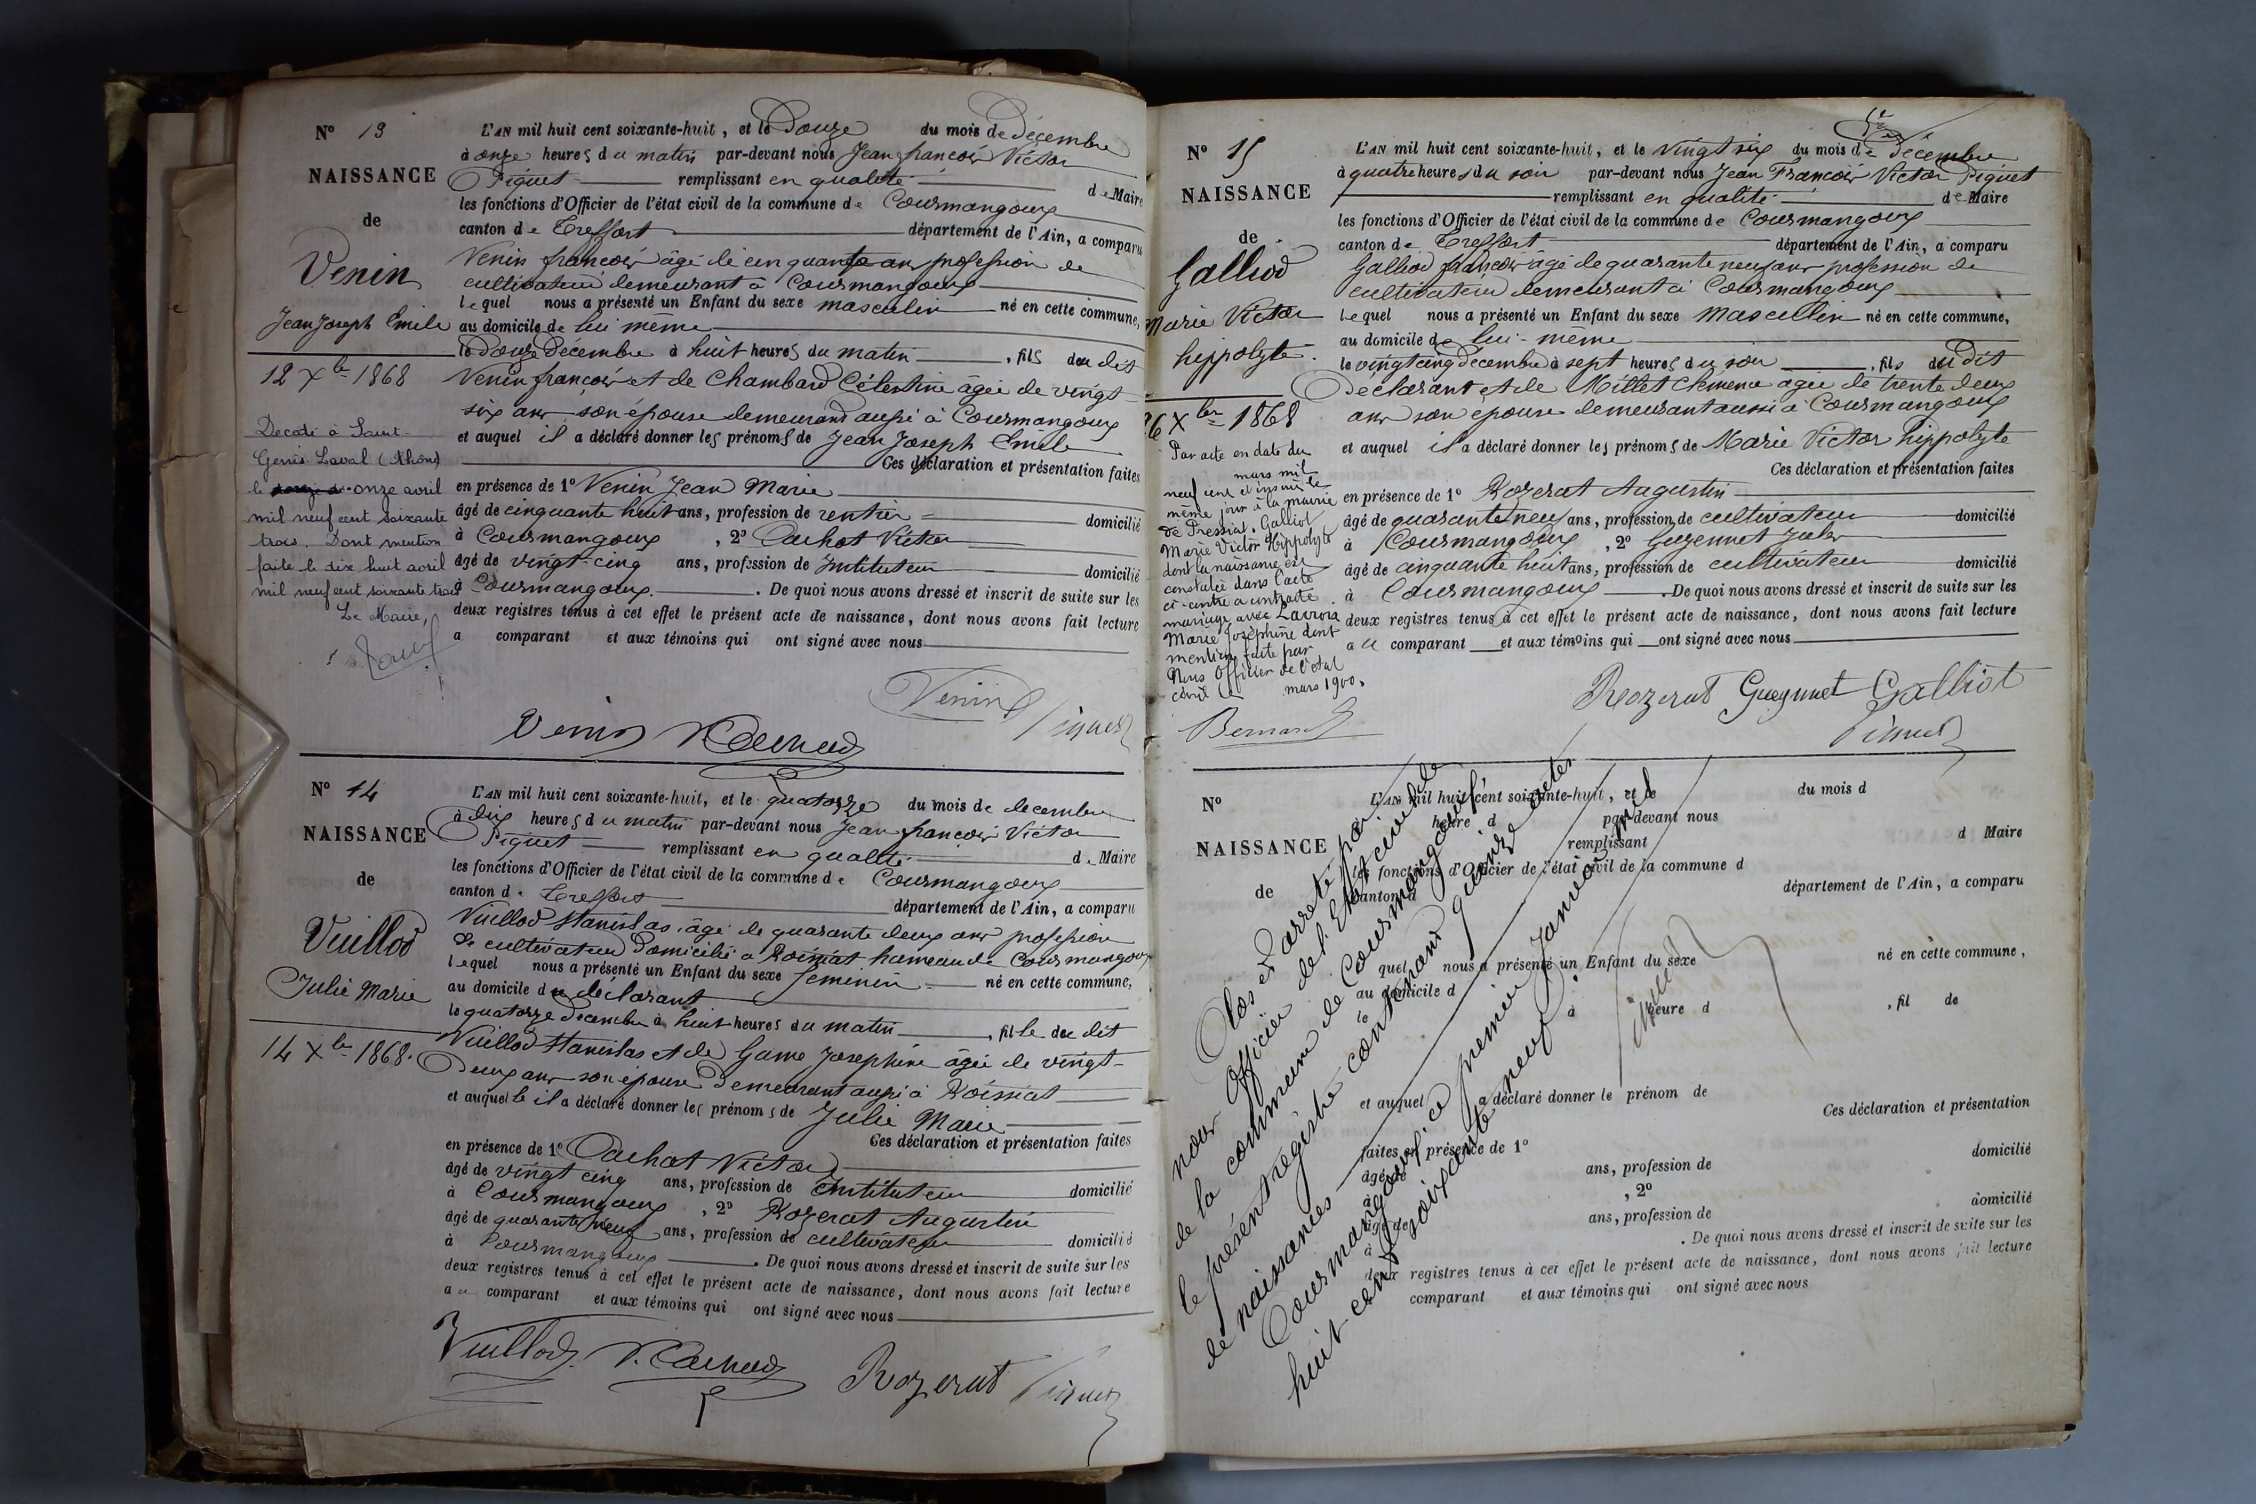 N° 13
NAISSANCE
de
Venin
Jean Joseph Emile
12 Xbre 1868
Décédé à Saint-
Genis Laval (Rhône)
le onze avril
mil neuf cent soixante
trois. Dont mention
faite le dix huit avril
mil neuf cent soixante trois
Le Maire,
L'AN mil huit cent soixante-huit, et le Douze du mois de Décembre
à onze heures du matin par-devant nous Jean françois Victor
Piquet remplissant en qualité de Maire
les fonctions d'Officier de l'état civil de la commune de Coursmangoux
canton de Treffort département de l'Ain, a comparu
Venin françois âgé de cinquante ans profession de
cultivateur demeurant à Coursmangoux
lequel nous a présenté un Enfant du sexe masculin né en cette commune,
au domicile de lui même
le Douze Décembre à huit heures du matin, fils du dit
Venin françois et de Chambard Célestine âgée de vingt
six ans son épouse demeurant aussi à Coursmangoux
et auquel il a déclaré donner les prénoms de Jean Joseph Emile
Ces déclaration et présentation faites
en présence de 1° Venin Jean Marie
âgé de cinquante huit ans, profession de rentier domicilié
à Coursmangoux, 2° Cachot Victor
âgé de vingt-cinq ans, profession de Instituteur domicilié
à Coursmangoux. De quoi nous avons dressé et inscrit de suite sur les
deux registres tenus à cet effet le présent acte de naissance, dont nous avons fait lecture
a comparant et aux témoins qui ont signé avec nous
Venin Piquet
Venin V. Cachod
N° 14
NAISSANCE
de
Vuillod
Julie Marie
14 Xbre 1868.
L'AN mil huit cent soixante-huit, et le quatorze du mois de decembre
à Dix heures du matin par-devant nous Jean françois Victor
Piquet remplissant en qualité de Maire
les fonctions d'Officier de l'état civil de la commune de Coursmangoux
canton de Treffort département de l'Ain, a comparu
Vuillod Stanislas, âgé de quarante deux ans profession
de cultivateur Domicilié à Roissiat hameau de Coursmangoux
lequel nous a présenté un Enfant du sexe feminin né en cette commune,
au domicile du déclarant
le quatorze Décembre à huit heures du matin, fille du dit
Vuillod Stanislas et de Game Josephine âgée de vingt-
Deux ans son épouse Demeurant aussi à Roissiat
et auquelle il a déclaré donner les prénoms de Julie Marie
Ces déclaration et présentation faites
en présence de 1° Cachot Victor
âgé de vingt cinq ans, profession de Instituteur domicilié
à Coursmangoux, 2° Rozerat Augustin
âgé de quarante neuf ans, profession de cultivateur domicilié
à Coursmangoux. De quoi nous avons dressé et inscrit de suite sur les
deux registres tenus à cet effet le présent acte de naissance, dont nous avons fait lecture
au comparant et aux témoins qui ont signé avec nous
Vuillod V. Cachod Rozerat Piquet
N° 15
NAISSANCE
de
Galliod
Marie Victor
hippolyte.
26 Xbre 1868
Par acte en date du
mars mil
neuf cent et inscrit le
même jour à la mairie
de Pressiat. Galliot
Marie Victor Hippolyte
dont la naissance est
constatée dans l'acte
ci-contre a contracté
mariage avec Lacroix
Marie Joséphine dont
mention faite par
Nous Officier de l'état
civil mars 1900.
Bernard
L'AN mil huit cent soixante-huit, et le vingt six du mois de Décembre
à quatre heures du soir par-devant nous Jean François Victor Piquet
remplissant en qualité de Maire
les fonctions d'Officier de l'état civil de la commune de Coursmangoux
canton de Treffort département de l'Ain, a comparu
Galliod françois âgé de quarante neuf ans profession de
cultivateur demeurant à Coursmangoux
lequel nous a présenté un Enfant du sexe Masculin né en cette commune,
au domicile de lui-même
le vingt cinq décembre à sept heures du soir, fils du dit
Déclarant et de Millet Clemence âgée de trente deux
ans son épouse demeurant aussi à Coursmangoux
et auquel il a déclaré donner les prénoms de Marie Victor hippolyte
Ces déclaration et présentation faites
en présence de 1° Rozerat Augustin
âgé de quarante neuf ans, profession de cultivateur domicilié
à Coursmangoux, 2° Guzennet Jules
âgé de cinquante huit ans, profession de cultivateur domicilié
à Coursmangoux. De quoi nous avons dressé et inscrit de suite sur les
deux registres tenus à cet effet le présent acte de naissance, dont nous avons fait lecture
au comparant et aux témoins qui ont signé avec nous
Rozerat Galliot
Piquet
N°
NAISSANCE
de
L'AN mil huit cent soixante-huit, et le du mois d
heure d par-devant nous
remplissant d Maire
les fonctions d'Officier de l'état civil de la commune d
canton d département de l'Ain, a comparu
quel nous a présenté un Enfant du sexe né en cette commune,
au domicile d
le à heure d, fil de
et auquel a déclaré donner le prénom de
Ces déclaration et présentation
faites en présence de 1°
âgé de ans, profession de domicilié
à, 2°
âgé de ans, profession de domicilié
à. De quoi nous avons dressé et inscrit de suite sur les
deux registres tenus à cet effet le présent acte de naissance, dont nous avons fait lecture
comparant et aux témoins qui ont signé avec nous
Clos et arrêté par
nous Officier de l'Etat civil de
la commune de Coursmangoux,
le présent registre contenant quinze actes
de naissances
Coursmangoux, ce premier Janvier mil
huit-cent-soixante neuf.
Piquet